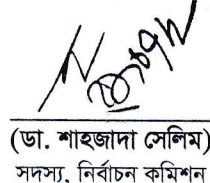 (ডা. শাহজাদা সেলিম)
সদস্য, নির্বাচন কমিশন